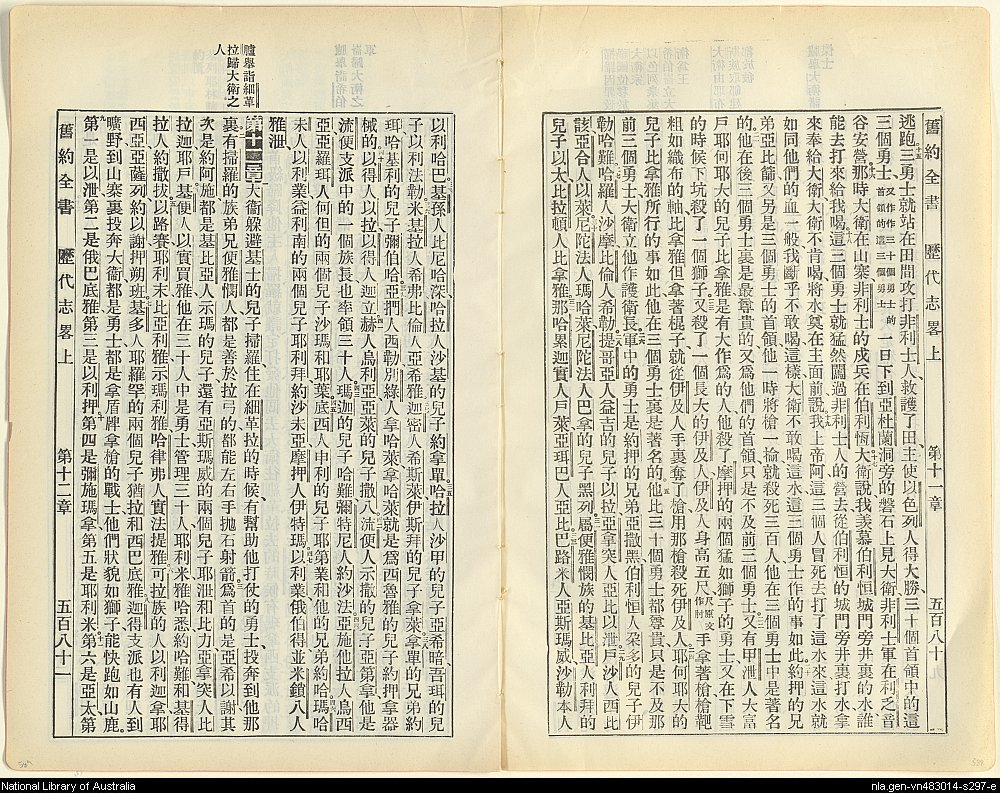 舊約全書 歷代志畧上 第十一章 五百八十
逃跑三勇士就站在田間攻打非利士人救護了田主使以色列人得大勝三十個首領中的這
三個勇士又作三十個勇士的首領的這三個勇士一日下到亞杜蘭洞旁的磐石上見大衛非利士軍在利乏音
谷安營那時大衛在山寨非利士的戍兵在伯利恆大衛說我羨慕伯利恆城門旁井裏的水誰
能去打來給我喝這三個勇士就猛然闖過非利士人的營去從伯利恆的城門旁井裏打水拿
來奉給大衛大衛不肯喝將水奠在主面前說我上帝阿這三個人冒死去打了這水來這水就
如同他們的血一般我斷乎不敢喝這樣大衛不敢喝這水這三個勇士作的事如此約押的兄
弟亞比篩又另是三個勇士的首領他一時將槍一掄就殺死三百人他在三個勇士中是著名
的他在後三個勇士裏是最尊貴的又為他們的首領只是不及前三個勇士又有甲泄人大富
戶耶何耶大的兒子比拿雅是有大作為的人他殺了摩押的兩個猛如獅子的勇士又在下雪
的時候下坑殺了一個獅子又殺了一個長大的伊及人伊及人身高五尺尺原文作肘手拿著槍槍靶
粗如織布的軸比拿雅但拿著棍子就從伊及人手裏奪了槍用那槍殺死伊及人耶何耶大的
兒子比拿雅所行的事如此他在三個勇士裏是著名的他比三十個勇士都尊貴只是不及那
前三個勇士大衛立他作護衛長軍中的勇士是約押的兄弟亞撒黑伯利恒人朶多的兒子伊
勒哈難哈羅人沙摩比倫人希勒提哥亞人益吉的兒子以拉亞拿突人亞比以泄戶沙人西比
該亞合人以萊尼陀法人瑪哈萊尼陀法人巴拿的兒子黑列屬便雅憫族的基比亞人利拜的
兒子以太比拉頓人比拿雅那哈累迦實人戶萊亞珥巴人亞比巴路米人亞斯瑪威沙勒本人
臚舉詣細革
拉歸大衛之
人
舊約全書 歷代志畧上 第十二章 五百八十一
以利哈巴基孫人比尼哈深哈拉人沙基的兒子約拿單哈拉人沙甲的兒子亞希暗吾珥的兒
子以利法勒米基拉人希弗比倫人亞希雅迦密人希斯萊伊斯拜的兒子拿萊拿單的兄弟約
珥哈基利的兒子彌伯哈亞捫人西勒別綠人拿哈萊拿哈萊就是為西魯雅的兒子約押拿器
械的以得人以拉以得人迦立赫人烏利亞亞萊的兒子撒八流便人示撒的兒子亞第拿他是
流便支派中的一個族長也率領三十人瑪迦的兒子哈難彌特尼人約沙法亞施他拉人烏西
亞亞羅珥人何但的兩個兒子沙瑪和耶葉底西人申利的兒子耶第業和他的兄弟約哈瑪哈
未人以利業益利南的兩個兒子耶利拜約沙未亞摩押人伊特瑪以利業俄伯得並米鎖八人
雅泄
第十二章大衛躲避基士的兒子掃羅住在細革拉的時候有幫助他打仗的勇士投奔到他那
裏有掃羅的族弟兄便雅憫人都是善於拉弓的都能左右手拋石射箭為首的是亞希以謝其
次是約阿施都是基比亞人示瑪的兒子還有亞斯瑪威的兩個兒子耶泄和比力亞拿突人比
拉迦耶戶基便人以實買雅他在三十人中是勇士管理三十人耶利米雅哈悉約哈難和基得
拉人約撒拔以路賽耶利末比亞利雅示瑪利雅哈律弗人實法提雅可拉族的人以利迦拿耶
西亞亞薩列約以謝押朔班基多人耶羅罕的兩個兒子猶拉和西巴底雅迦得支派也有人到
曠野到山寨裏投奔大衛都是勇士都是拿盾牌拿槍的戰士他們狀貌如獅子能快跑如山鹿
第一是以泄第二是俄巴底雅第三是以利押第四是彌施瑪拿第五是耶利米第六是亞太第
National Library of Australia
nla.gen-vn483014-s297-e